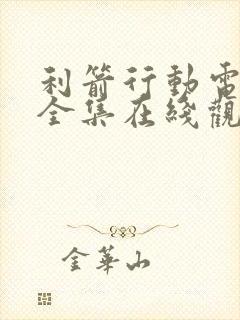 利箭行動電
全集在綫觀
金華山